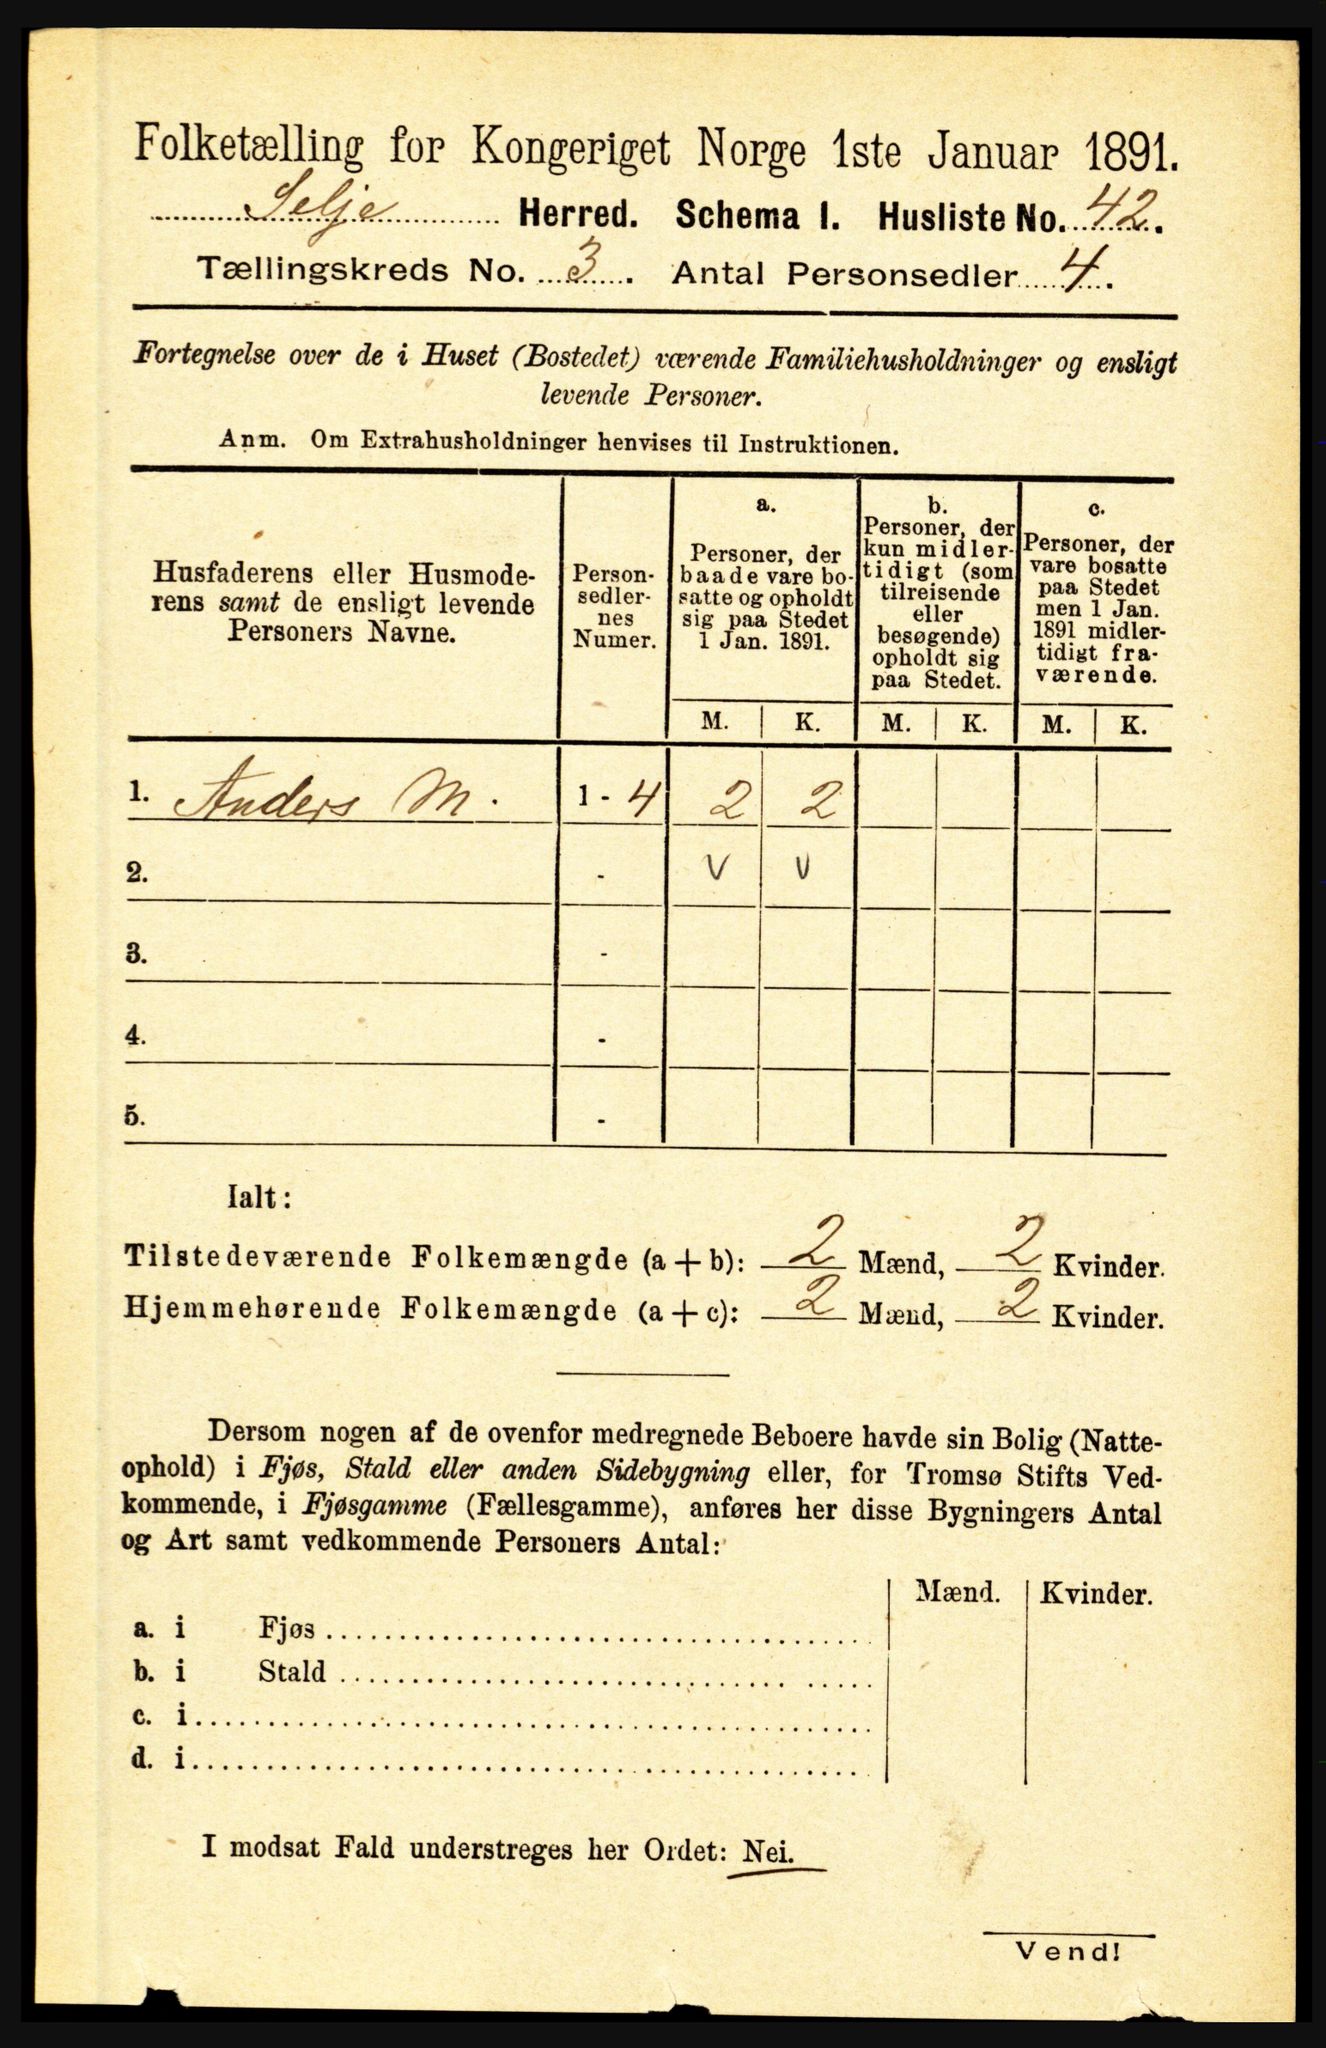 Folketælling for Kongeriget Norge 1ste Januar 1891.
Selje Herred. Schema I. Husliste No. 42.
Tællingskreds No. 3. Antal Personsedler 4.
Fortegnelse over de i Huset (Bostedet) værende Familiehusholdninger og ensligt
levende Personer.
Anm. Om Extrahusholdninger henvises til Instruktionen.
Husfaderens eller Husmode-
rens samt de ensligt levende
Personers Navne.
Person-
sedler-
nes
Numer.
a.
Personer, der
baade vare bo-
satte og opholdt
sig paa Stedet
1 Jan. 1891.
b.
Personer, der
kun midler-
tidigt (som
tilreisende
eller
besøgende)
opholdt sig
paa Stedet.
c.
Personer, der
vare bosatte
paa Stedet
men 1 Jan.
1891 midler-
tidigt fra-
værende.
M. K. M. K. M. K.
1. Anders M. 1 - 4 2 2
2. - v v
3. -
4. -
5. -
Ialt:
Tilstedeværende Folkemængde (a + b): 2 Mænd, 2 Kvinder.
Hjemmehørende Folkemængde (a + c): 2 Mænd, 2 Kvinder.
Dersom nogen af de ovenfor medregnede Beboere havde sin Bolig (Natte-
ophold) i Fjøs, Stald eller anden Sidebygning eller, for Tromsø Stifts Ved-
kommende, i Fjøsgamme (Fællesgamme), anføres her disse Bygningers Antal
og Art samt vedkommende Personers Antal:
Mænd. Kvinder.
a. i Fjøs
b. i Stald
c. i
d. i
I modsat Fald understreges her Ordet: Nei.
Vend!